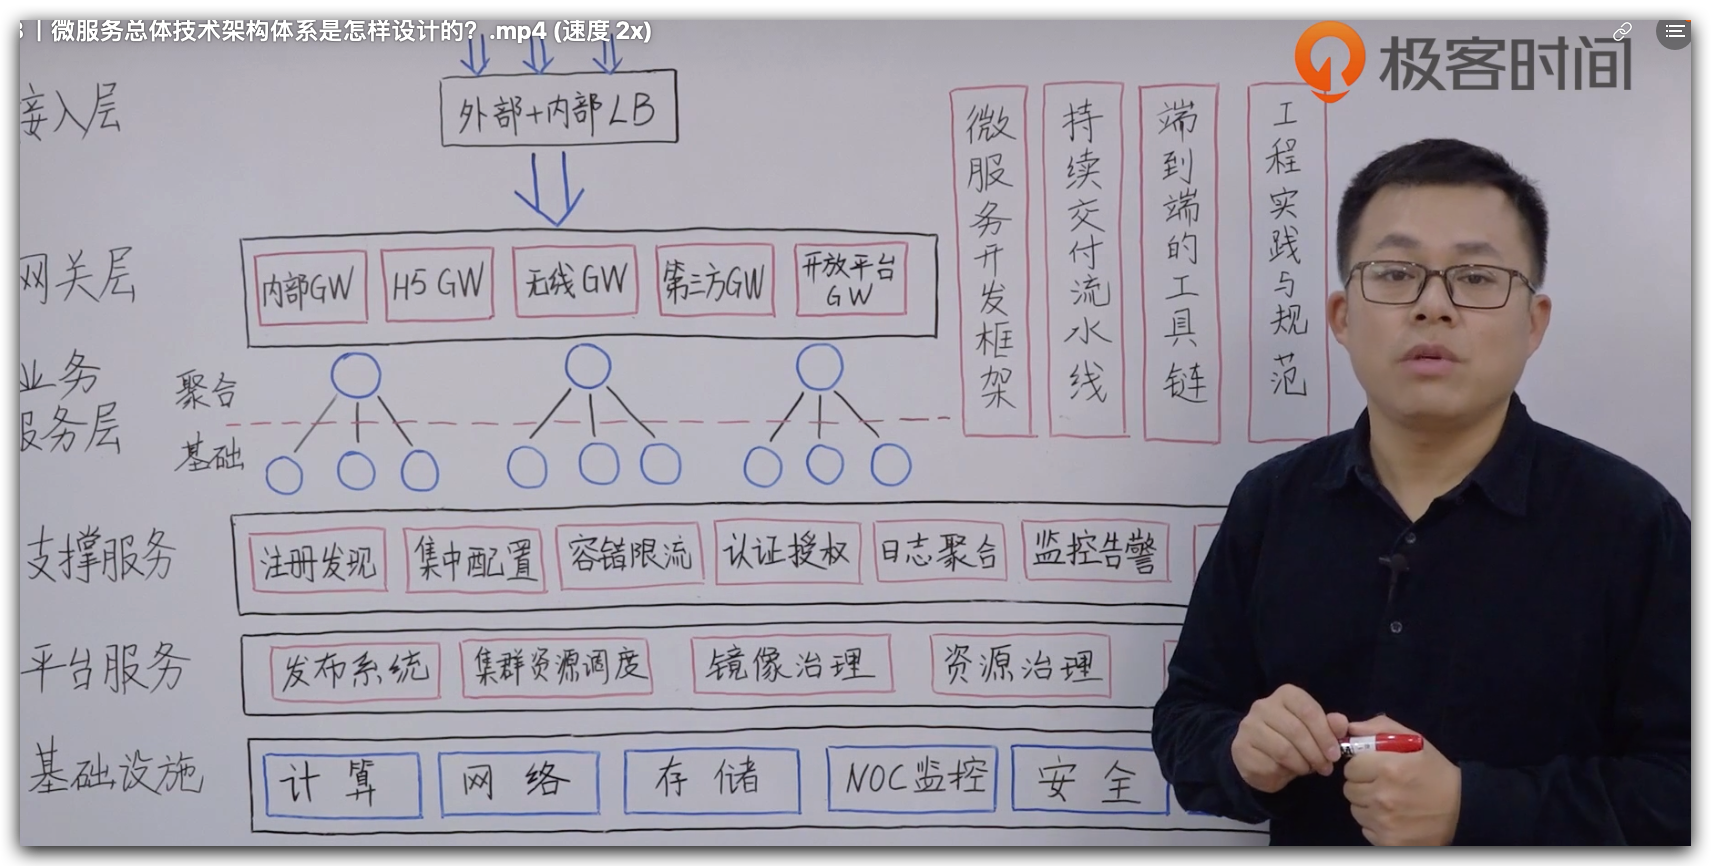 微服务总体技术架构体系是怎样设计的？.mp4 (速度 2x)
极客时间
接入层
外部+内部LB
网关层
内部GW
H5 GW
无线GW
第三方GW
开放平台
GW
业务
服务层
聚合
基础
微服务开发框架
持续交付流水线
端到端的工具链
工程实践与规范
支撑服务
注册发现
集中配置
容错限流
认证授权
日志聚合
监控告警
平台服务
发布系统
集群资源调度
镜像治理
资源治理
基础设施
计算
网络
存储
NOC监控
安全